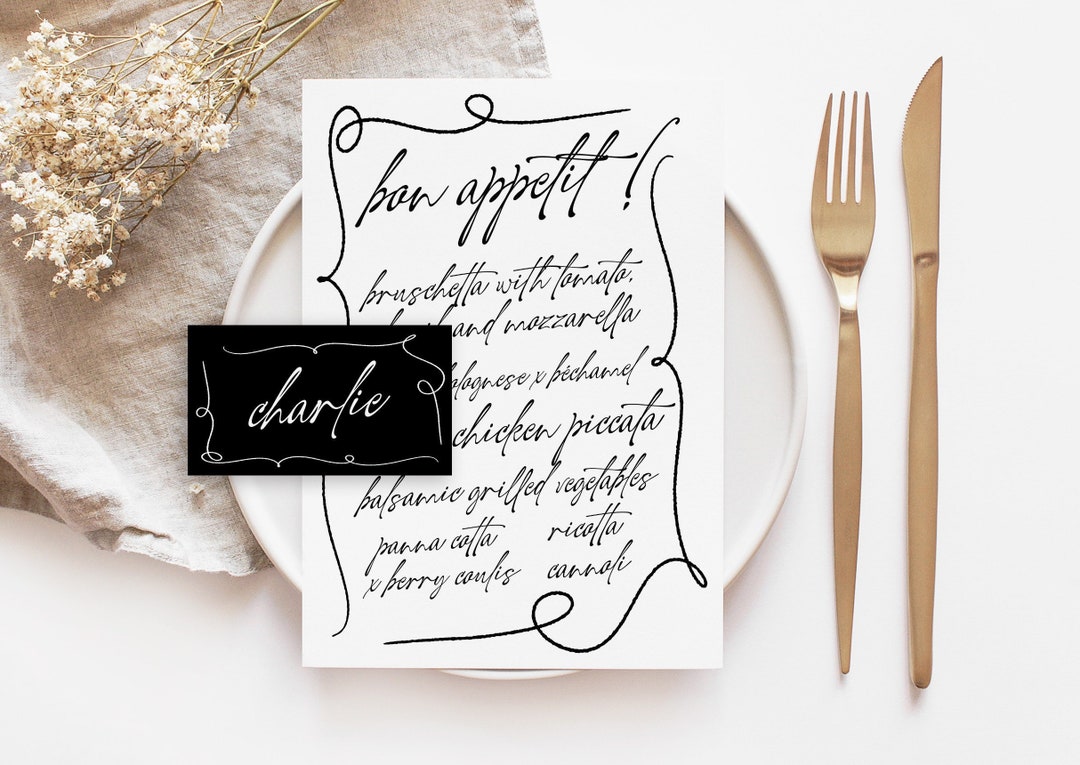 bon appetit !
bruschetta with tomato,
and mozzarella
bolognese x béchamel
chicken piccata
balsamic grilled vegetables
panna cotta
x berry coulis
ricotta
cannoli
charlie